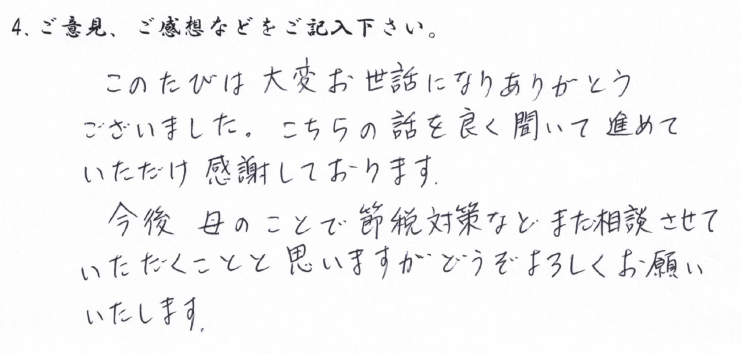 4. ご意見、ご感想などをご記入下さい。
このたびは大変お世話になりありがとう
ございました。こちらの話を良く聞いて進めて
いただけ感謝しております.
今後 母のことで節税対策などまた相談させて
いただくことと思いますがどうぞよろしくお願い
いたします.